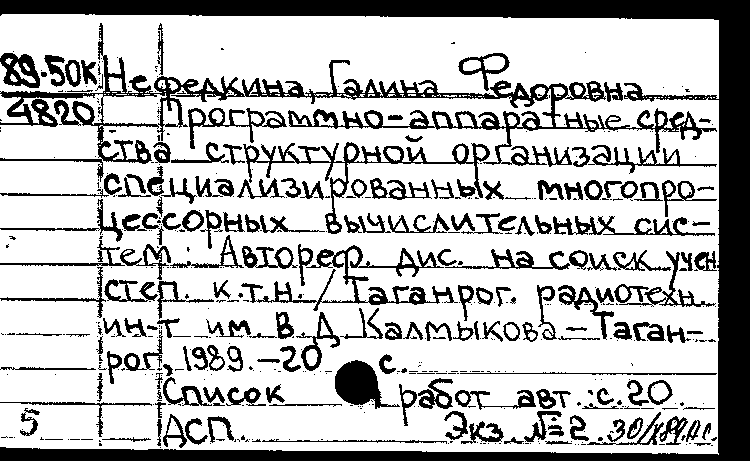 89-50к Нефедкина, Галина Федоровна
4820 Программно-аппаратные сред-
ства структурной организации
специализированных многопро-
цессорных вычислительных сис-
тем: Автореф. дис. на соиск учен
степ. к.т.н. / Таганрог. радиотехн.
ин-т им. В.Д. Калмыкова.- Таган-
рог, 1989. -20 с.
Список работ авт.: с.20.
5 ДСП. Экз. №2.